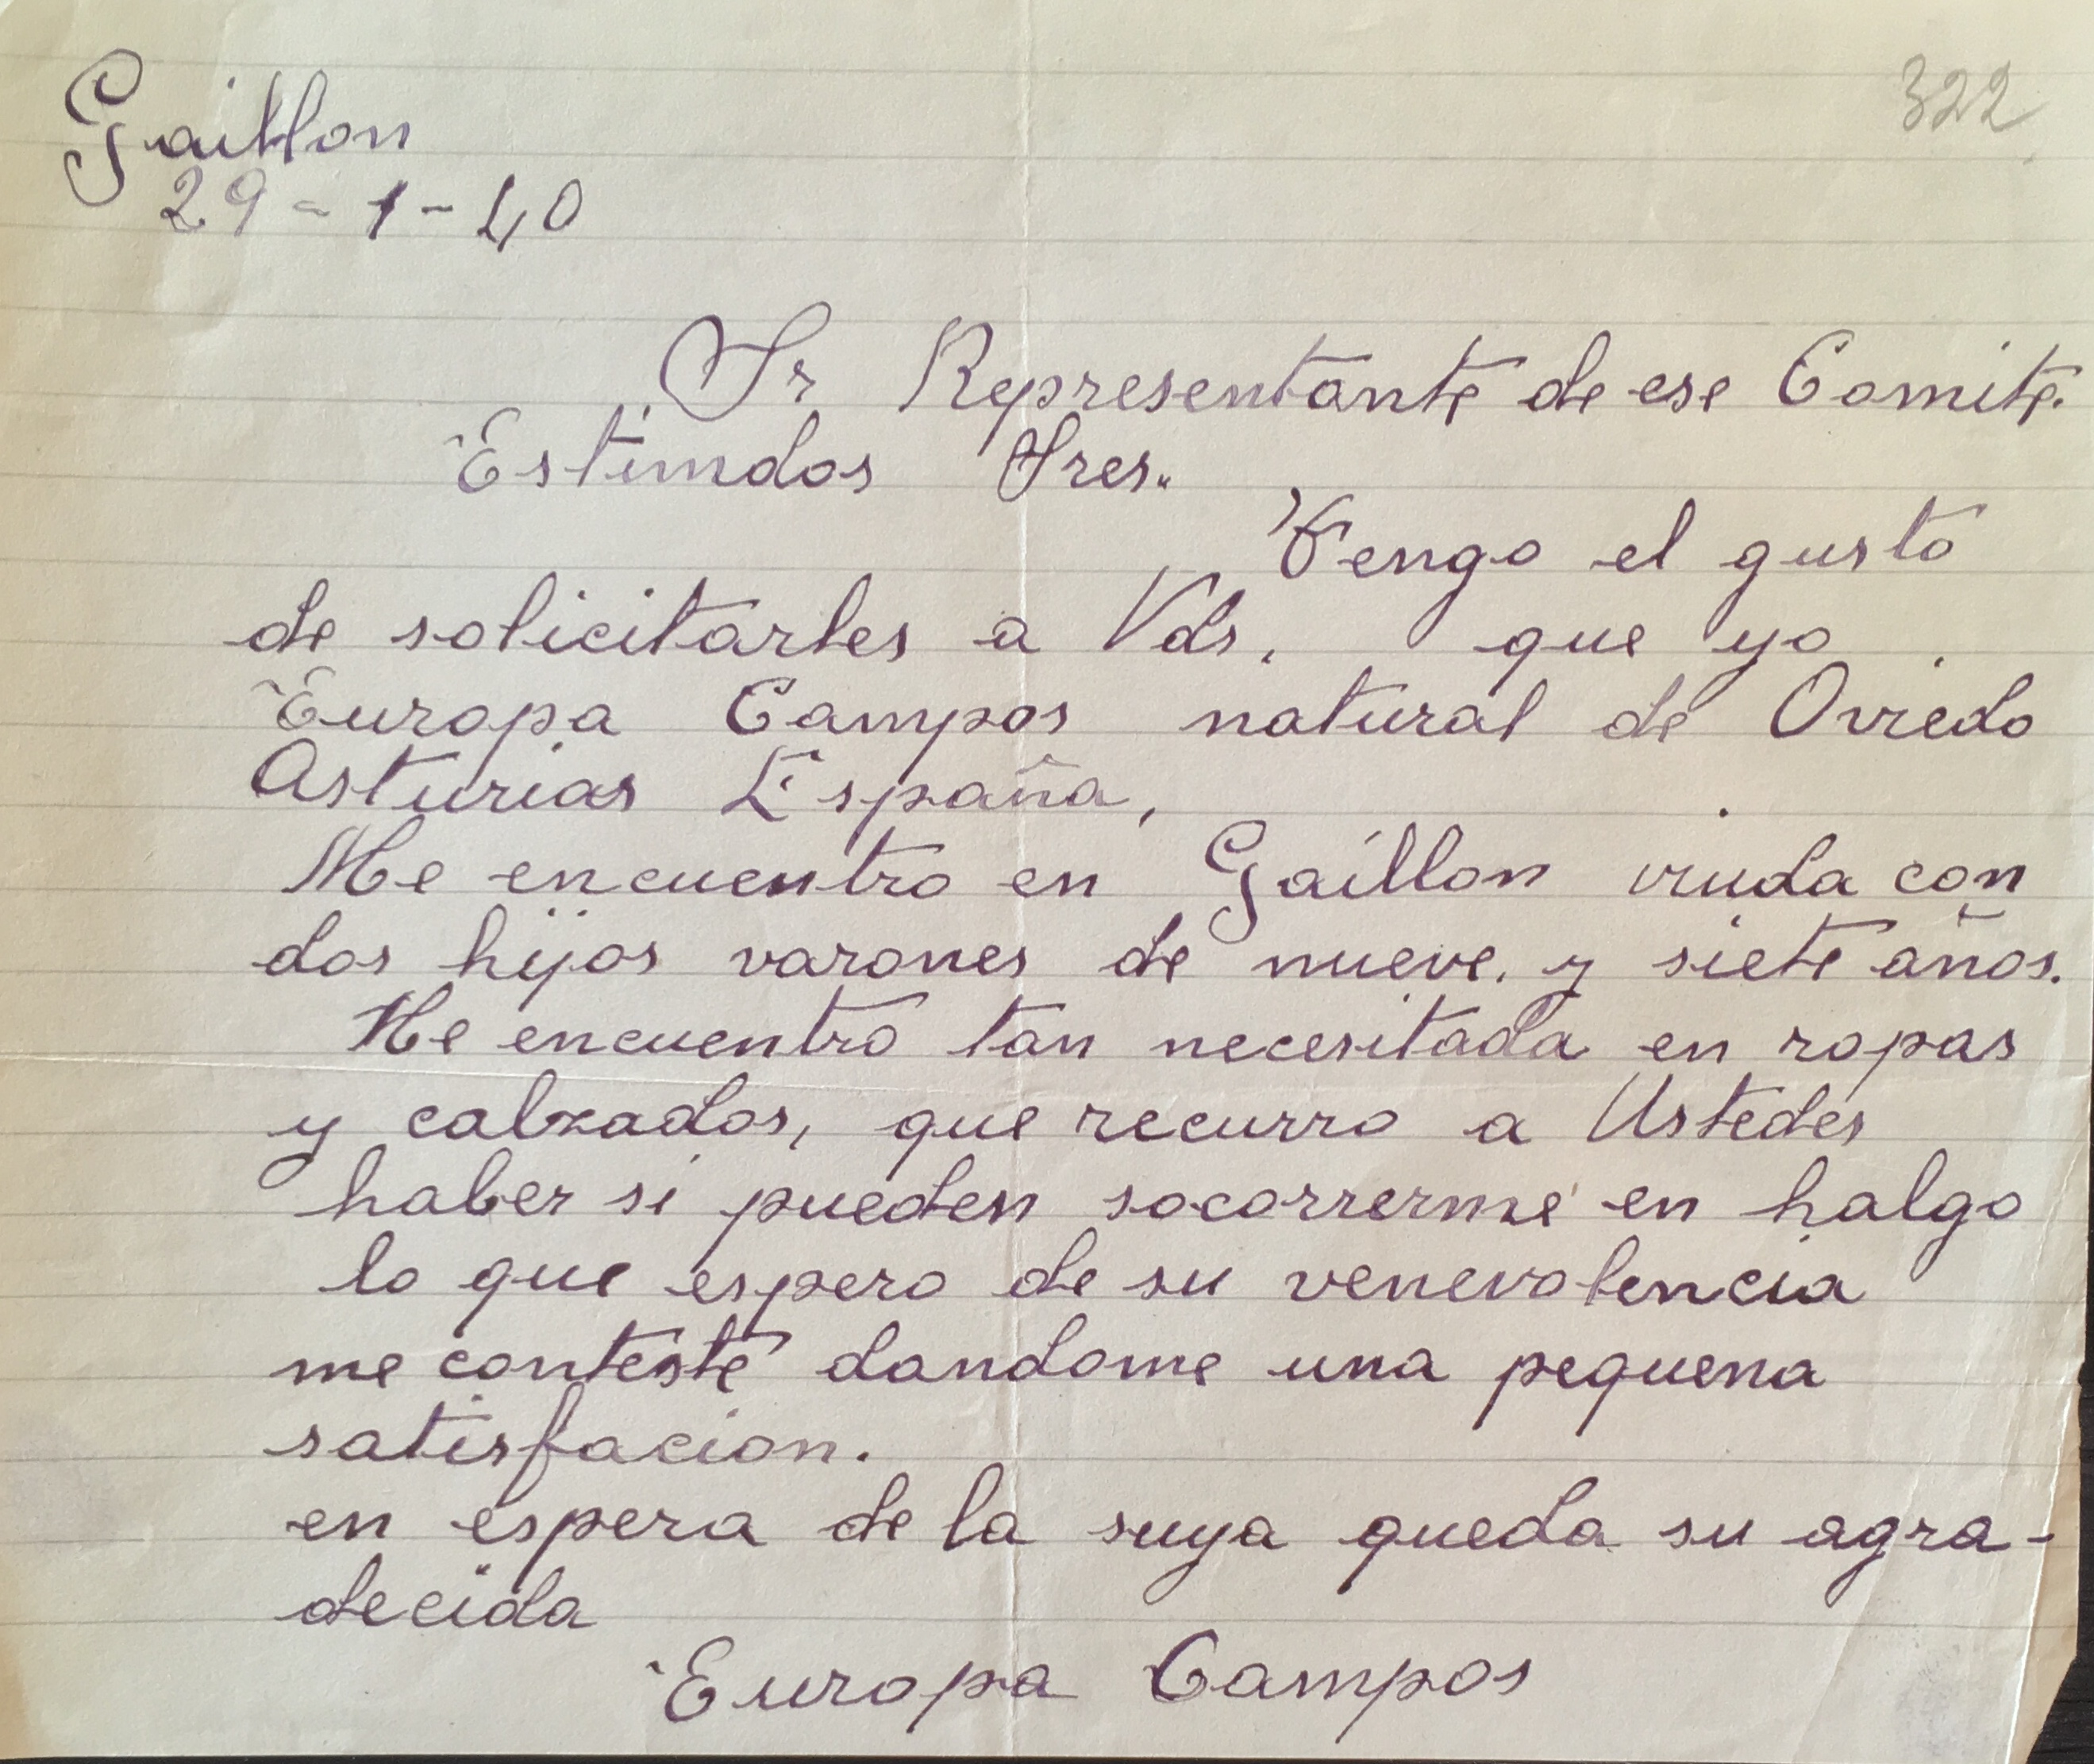 322
Gaillon
29-1-40
Sr Representante de ese Comite.
Estimdos Sres.
Tengo el gusto
de solicitarles a Vds, que yo
Europa Campos natural de Oviedo
Asturias España,
Me encuentro en Gaillon viuda con
dos hijos varones de nueve, y siete años.
Me encuentro tan necesitada en ropas
y calzados, que recurro a Ustedes
haber si pueden socorrerme en halgo
lo que espero de su venevolencia
me conteste dandome una pequena
satisfacion.
en espera de la suya queda su agra-
decida
Europa Campos